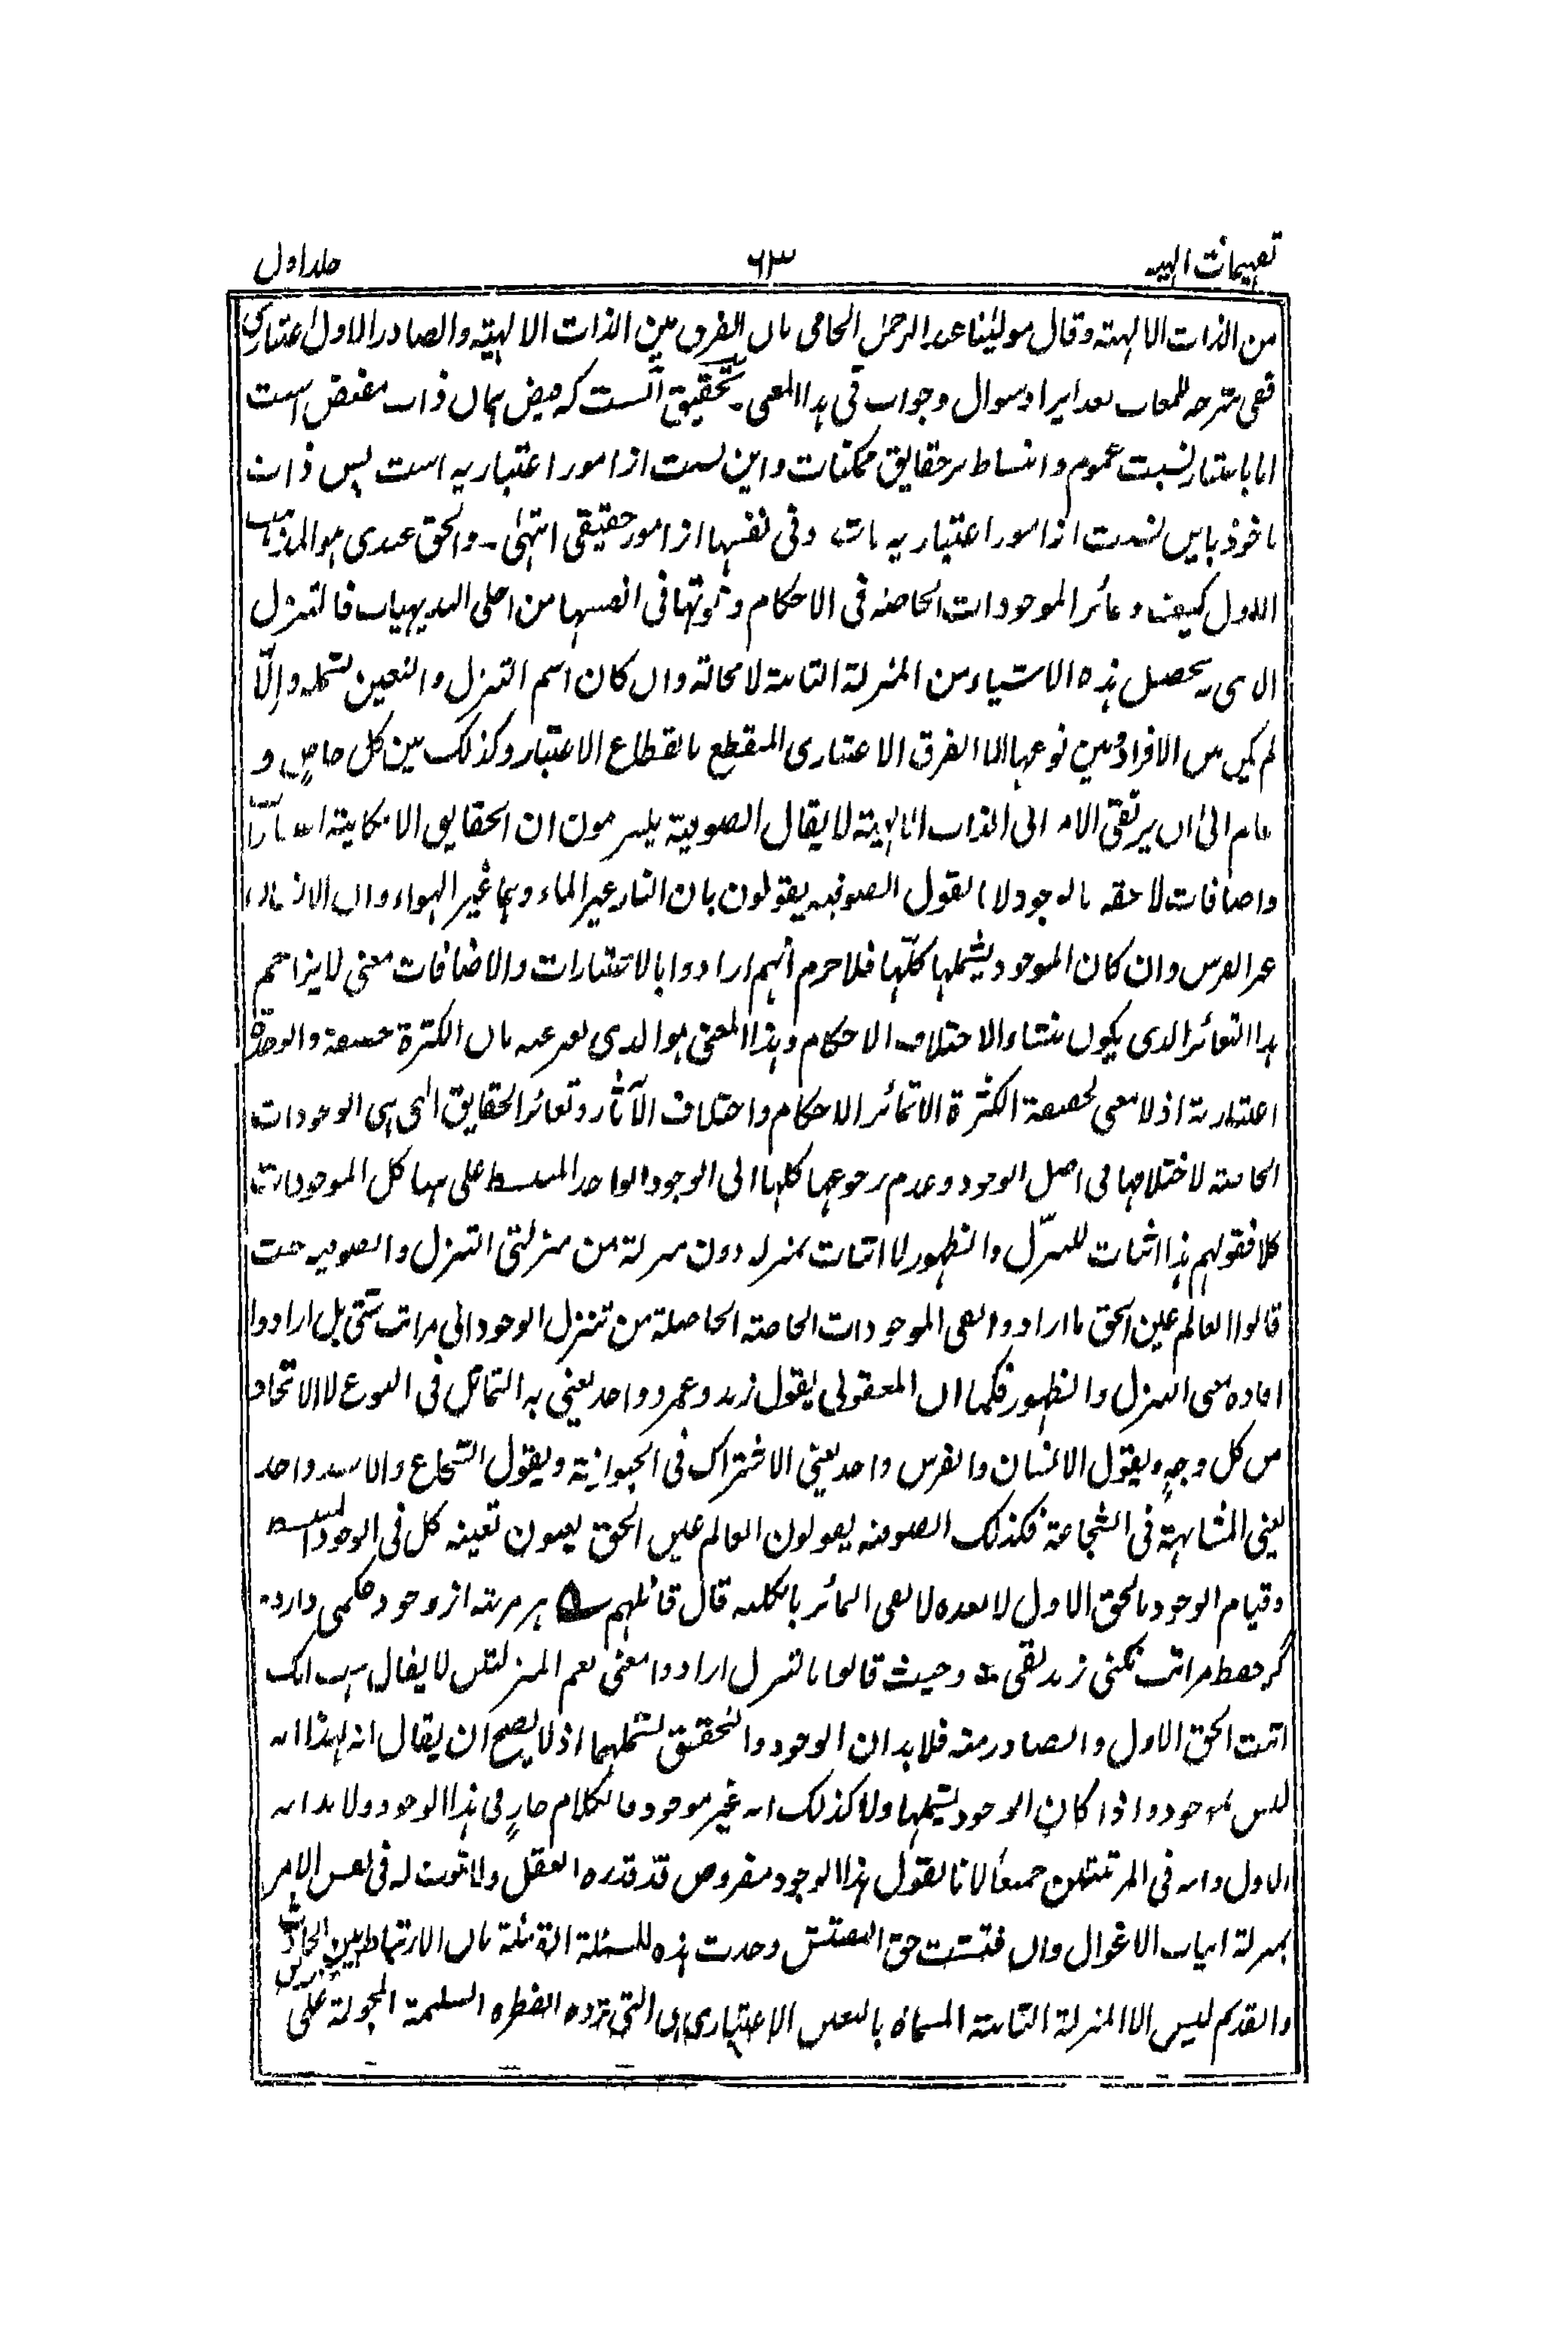 تفہیمات الہیہ ۶۳ جلد اول
من الذات الالہیۃ وقال مولینا عبد الرحمٰن الجامی بان الفرق بین الذات الالہیۃ والصادر الاول اعتباری
ففی شرحہ للمعات بعد ایراد سوال وجواب فی ہذا المعنی۔ تحقیق آنست کہ فیض ہمان ذات مفیض است
اما باعتبار نسبت عموم وانبساط بر حقایق ممکنات واین نسبت از امور اعتباریہ است پس ذات
ماخوذ باین نسبت از امور اعتباریہ باشد وفی نفسہا از امور حقیقی انتہیٰ۔ والحق عندی ہو المذہب
الاول کیف وتمائز الموجودات الخاصۃ فی الاحکام وثبوتہا فی انفسہا من اجلی البدیہیات فالتنزل
الذی بہ یحصل ہذہ الاشیاء من المنزلۃ الثانیۃ لا محالۃ وان کان اسم التنزل والتعین یشملہ والّا
لم یکن بین الافراد وبین نوعہا الا الفرق الاعتباری المنقطع بانقطاع الاعتبار وکذلک بین کل خاصٍ و
عام الیٰ ان یرتقی الامر الی الذات الالہیۃ لا یقال الصوفیۃ یلتزمون ان الحقایق الامکانیۃ اعتبارات
واضافات لاحقۃ بالوجود لانا نقول الصوفیہ یقولون بان النار غیر الماء وہما غیر الہواء وان الانسان
غیر الفرس وان کان الموجود یشملہا کلّہا فلا جرم انہم ارادوا بالاعتبارات والاضافات معنی لا یزاحم
ہذا التمائز الذی یکون منشاء لاختلاف الاحکام وہذا المعنی ہو الذی یعبر عنہ بان الکثرۃ حقیقۃ والوحدۃ
اعتباریۃ اذ لا معنی لحقیقۃ الکثرۃ الا تمائز الاحکام واختلاف الآثار وتمائز الحقایق التی ہی الوجودات
الخاصۃ لاختلافہا فی اصل الوجود وعدم رجوعہا کلہا الی الوجود الواحد المنبسط علی ہیاکل الموجودات
کلا فقولہم ہذا اثبات للتنزّل والظہور لا اثبات لمنزلۃ دون منزلۃ من منزلتی التنزل والصوفیہ حیث
قالوا العالم عین الحق ما ارادوا نفی الموجودات الخاصۃ الحاصلۃ من تنزل الوجود الی مراتب شتّی بل ارادوا
افادہ معنی التنزل والظہور فکما ان المعقولی یقول زید وعمرو واحد یعنی بہ التماثل فی النوع لا الاتحاد
من کل وجہٍ ویقول الانسان والفرس واحد یعنی الاشتراک فی الحیوانیۃ ویقول الشّجاع والاسد واحد
یعنی المشابہۃ فی الشجاعۃ فکذلک الصوفیہ یقولون العالم عین الحق یعنون تعینہ کل فی الوجود المنبسط
وقیام الوجود بالحق الاول لا بعدہ لا نفی التمائز بالکلیہ قال قائلہم ؎ ہر مرتبہ از وجود حکمی دارد۔
گر حفظ مراتب نکنی زندیقی ٭ وحیث قالوا بالتنزل ارادوا معنی یعم المنزلتین لا یقال ہب انک
اثبت الحق الاول والصادر منہ فلا بد ان الوجود والتحقق یشملہما اذ لا یصح ان یقال انہ لہذا انہ
لیس بموجود واذا کان الوجود یشملہا ولا کذلک انہ غیر موجود فالکلام جارٍ فی ہذا الوجود ولا بد انہ
الاول وانہ فی المرتبتین جمیعاً لانا نقول ہذا الوجود مفروض قد قدرہ العقل ولا ثبوت لہ فی نفس الامر
بمنزلۃ انیاب الاغوال وان فتشت حق التفتیش وجدت ہذہ المسئلۃ القائلۃ بان الارتباط بین الحادث
والقدیم لیس الا المنزلۃ الثانیۃ المسماۃ بالتعین الاعتباری ہی التی تردہ الفطرہ السلیمۃ المجبولۃ علی